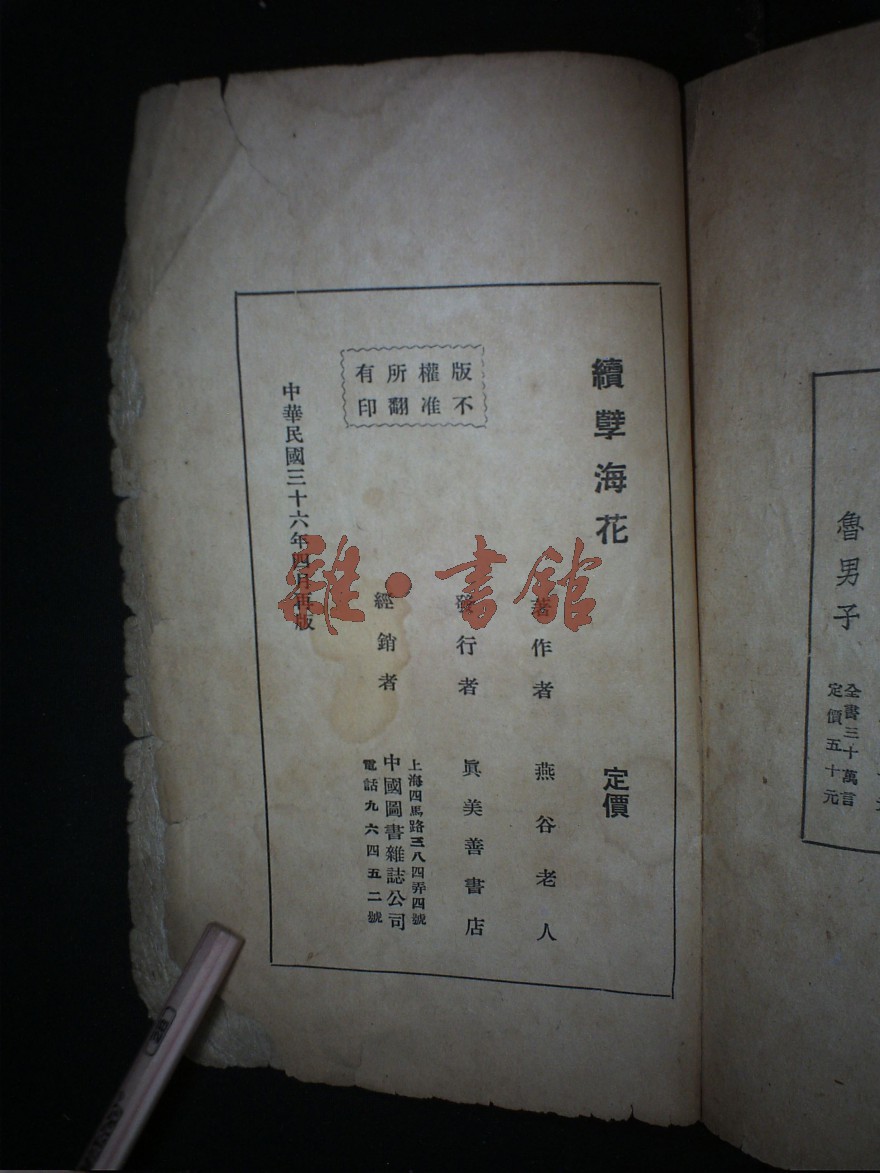 魯男子
全書三十萬言
定價五十元
續孽海花
定價
著作者 燕谷老人
發行者 眞美善書店
版權所有
不准翻印
經銷者
上海四馬路三八四弄四號
中國圖書雜誌公司
電話九六四五二號
中華民國三十六年四月再版
雜·書館